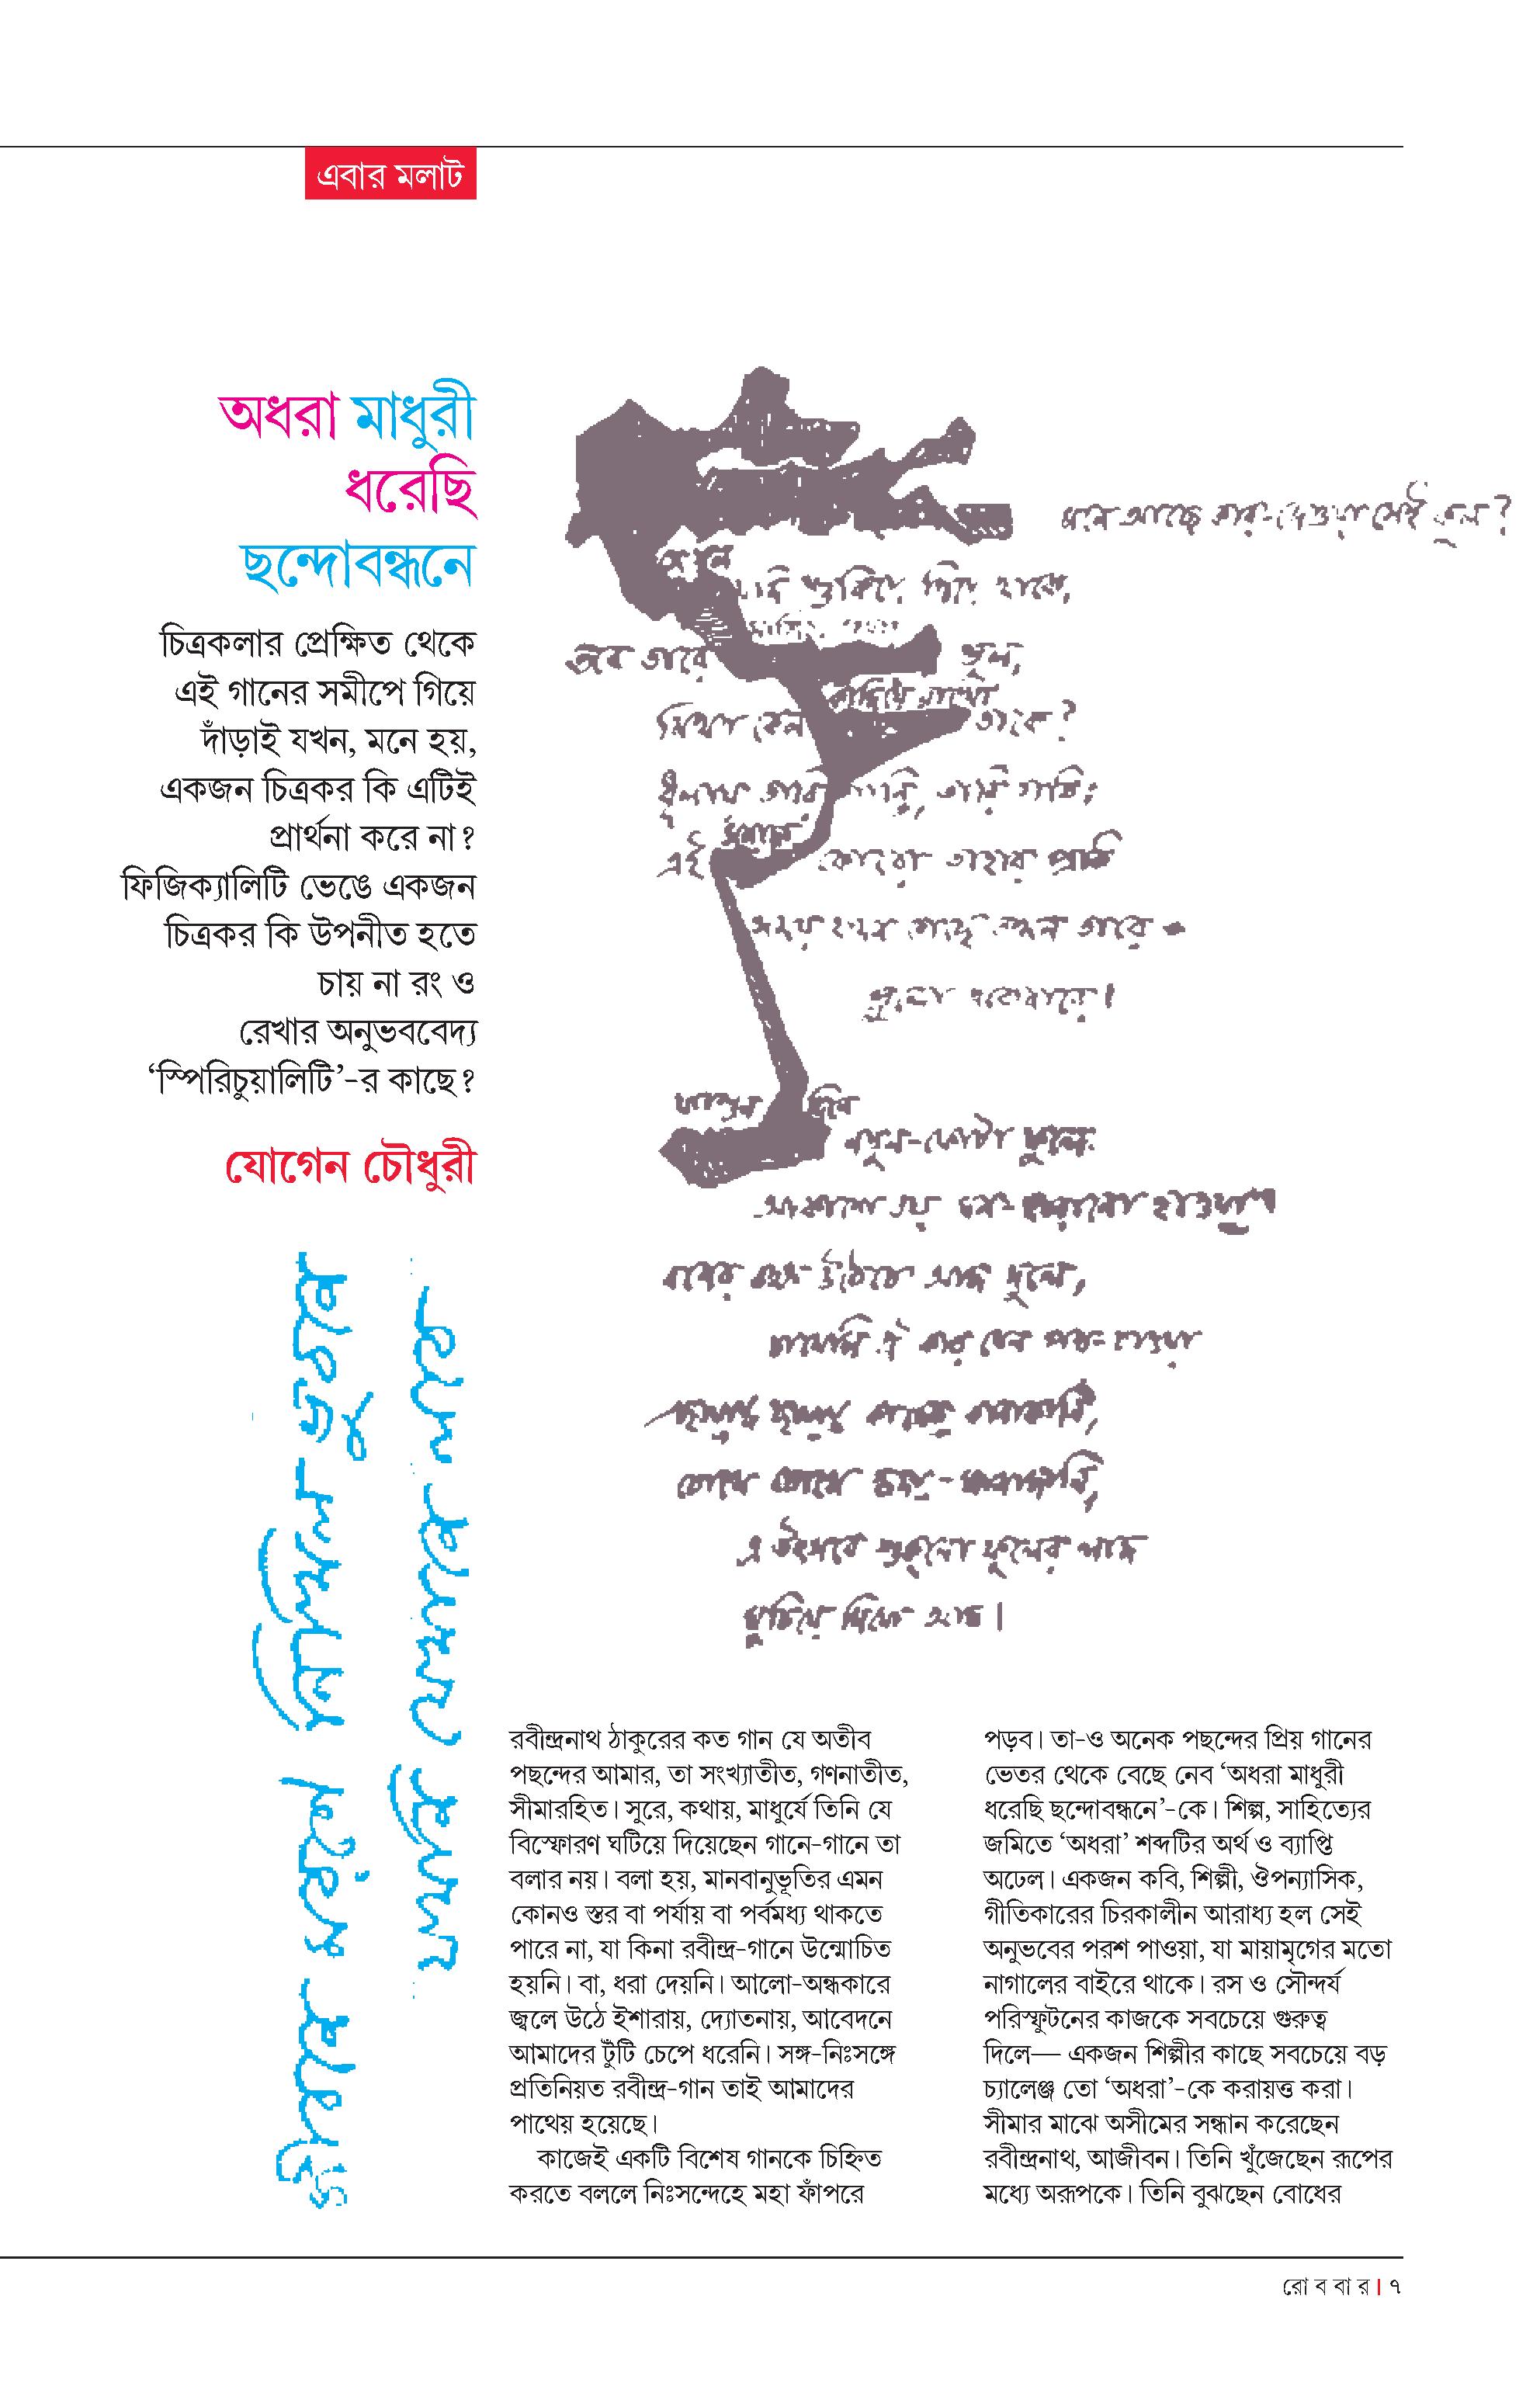 এবার মলাট
অধরা মাধুরী
ধরেছি
ছন্দোবন্ধনে
চিত্রকলার প্রেক্ষিত থেকে
এই গানের সমীপে গিয়ে
দাঁড়াই যখন, মনে হয়,
একজন চিত্রকর কি এটিই
প্রার্থনা করে না?
ফিজিক্যালিটি ভেঙে একজন
চিত্রকর কি উপনীত হতে
চায় না রং ও
রেখার অনুভববেদ্য
‘স্পিরিচুয়ালিটি’-র কাছে?
যোগেন চৌধুরী
মনে আছে কার দেওয়া সেই ফুল?
শুকিয়ে গিয়ে থাকে,
তবে তারে ভুল,
মিথ্যা কেন তাকে?
ধুলায় তারি
এই তাহার প্রতি
সময় যখন গেছে তখন তারে
ভুলো একেবারে।
ফাগুন দিন
নতুন-ফোটা ফুলে
হাওয়া
বনের উঠেছে আজ দুলে,
চামেলি ঐ কার যেন পথ-চাওয়া
কানাকানি,
চোখে চোখে
এ উৎসবে শুকনো ফুলের লাজ
ঘুচিয়ে দিয়ো আজ।
রবীন্দ্রনাথ ঠাকুরের কত গান যে অতীব
পছন্দের আমার, তা সংখ্যাতীত, গণনাতীত,
সীমারহিত। সুরে, কথায়, মাধুর্যে তিনি যে
বিস্ফোরণ ঘটিয়ে দিয়েছেন গানে-গানে তা
বলার নয়। বলা হয়, মানবানুভূতির এমন
কোনও স্তর বা পর্যায় বা পর্বমধ্য থাকতে
পারে না, যা কিনা রবীন্দ্র-গানে উন্মোচিত
হয়নি। বা, ধরা দেয়নি। আলো-অন্ধকারে
জ্বলে উঠে ইশারায়, দ্যোতনায়, আবেদনে
আমাদের টুঁটি চেপে ধরেনি। সঙ্গ-নিঃসঙ্গে
প্রতিনিয়ত রবীন্দ্র-গান তাই আমাদের
পাথেয় হয়েছে।
কাজেই একটি বিশেষ গানকে চিহ্নিত
করতে বললে নিঃসন্দেহে মহা ফাঁপরে
পড়ব। তা-ও অনেক পছন্দের প্রিয় গানের
ভেতর থেকে বেছে নেব ‘অধরা মাধুরী
ধরেছি ছন্দোবন্ধনে’-কে। শিল্প, সাহিত্যের
জমিতে ‘অধরা’ শব্দটির অর্থ ও ব্যাপ্তি
অঢেল। একজন কবি, শিল্পী, ঔপন্যাসিক,
গীতিকারের চিরকালীন আরাধ্য হল সেই
অনুভবের পরশ পাওয়া, যা মায়ামৃগের মতো
নাগালের বাইরে থাকে। রস ও সৌন্দর্য
পরিস্ফুটনের কাজকে সবচেয়ে গুরুত্ব
দিলে— একজন শিল্পীর কাছে সবচেয়ে বড়
চ্যালেঞ্জ তো ‘অধরা’-কে করায়ত্ত করা।
সীমার মাঝে অসীমের সন্ধান করেছেন
রবীন্দ্রনাথ, আজীবন। তিনি খুঁজেছেন রূপের
মধ্যে অরূপকে। তিনি বুঝছেন বোধের
রো ব বা র। ৭